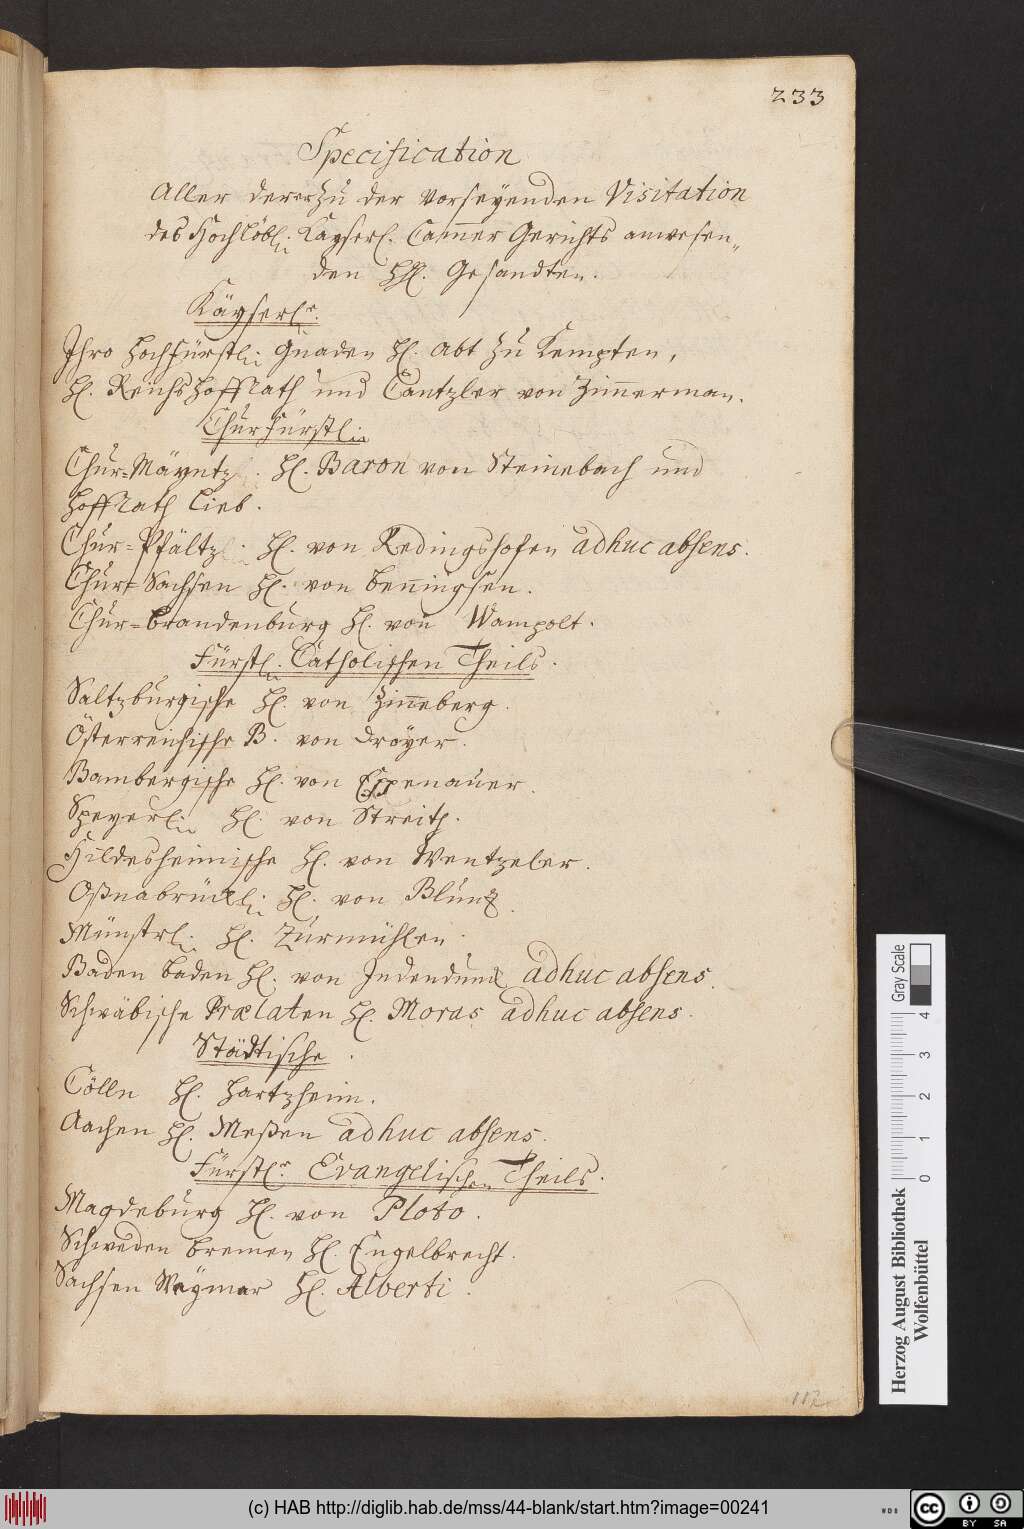 233
Specification
Aller derer Zu der vorseyenden Visitation
des Hochlöbl: Kayserl. Cam̅er Gerichts anwesen„
den HH. Gesandten.
Käyserl.r
Ihro Hochfürstl: Gnaden H. Abt Zu Kempten,
H. Reichs Hoffrath und Cantzler von Zim̅erman.
ChurFürstl:
Chur-Mäyntz. H. Baron von Steinebach und
Hoffrath Lieb.
Chur-Pfältz. H. von Redingshofen adhuc absens.
Chur-Sachsen H. von Ben̅ingsen.
Chur-Brandenburg H. von Wampolt.
Fürstl. Catholischen Theils.
Saltzburgische H. von Zim̅eberg.
Österreichische B. von Dröyer.
Bambergische H. von Eppenauer.
Speyerl: H. von Streith.
Hildesheimische H. von Wentzeler.
Oßnabrückl: H. von Blum
Münstrl: H. Zurmühlen.
Baden Baden H. von adhuc absens.
Schwäbische Prælaten H. Moras adhuc absens.
Städtische.
Cölln H. Hartzheim.
Aachen H. Meßen adhuc absens.
Fürstl.r Evangelischen Theils.
Magdeburg H. von Ploto.
Schweden Bremen H. Engelbrecht.
Sachsen Waymar H. Alberti.
112
Gray Scale
0 1 2 3 4
Herzog August Bibliothek
Wolfenbüttel
(c) HAB http://diglib.hab.de/mss/44-blank/start.htm?image=00241
WDB
cc BY SA